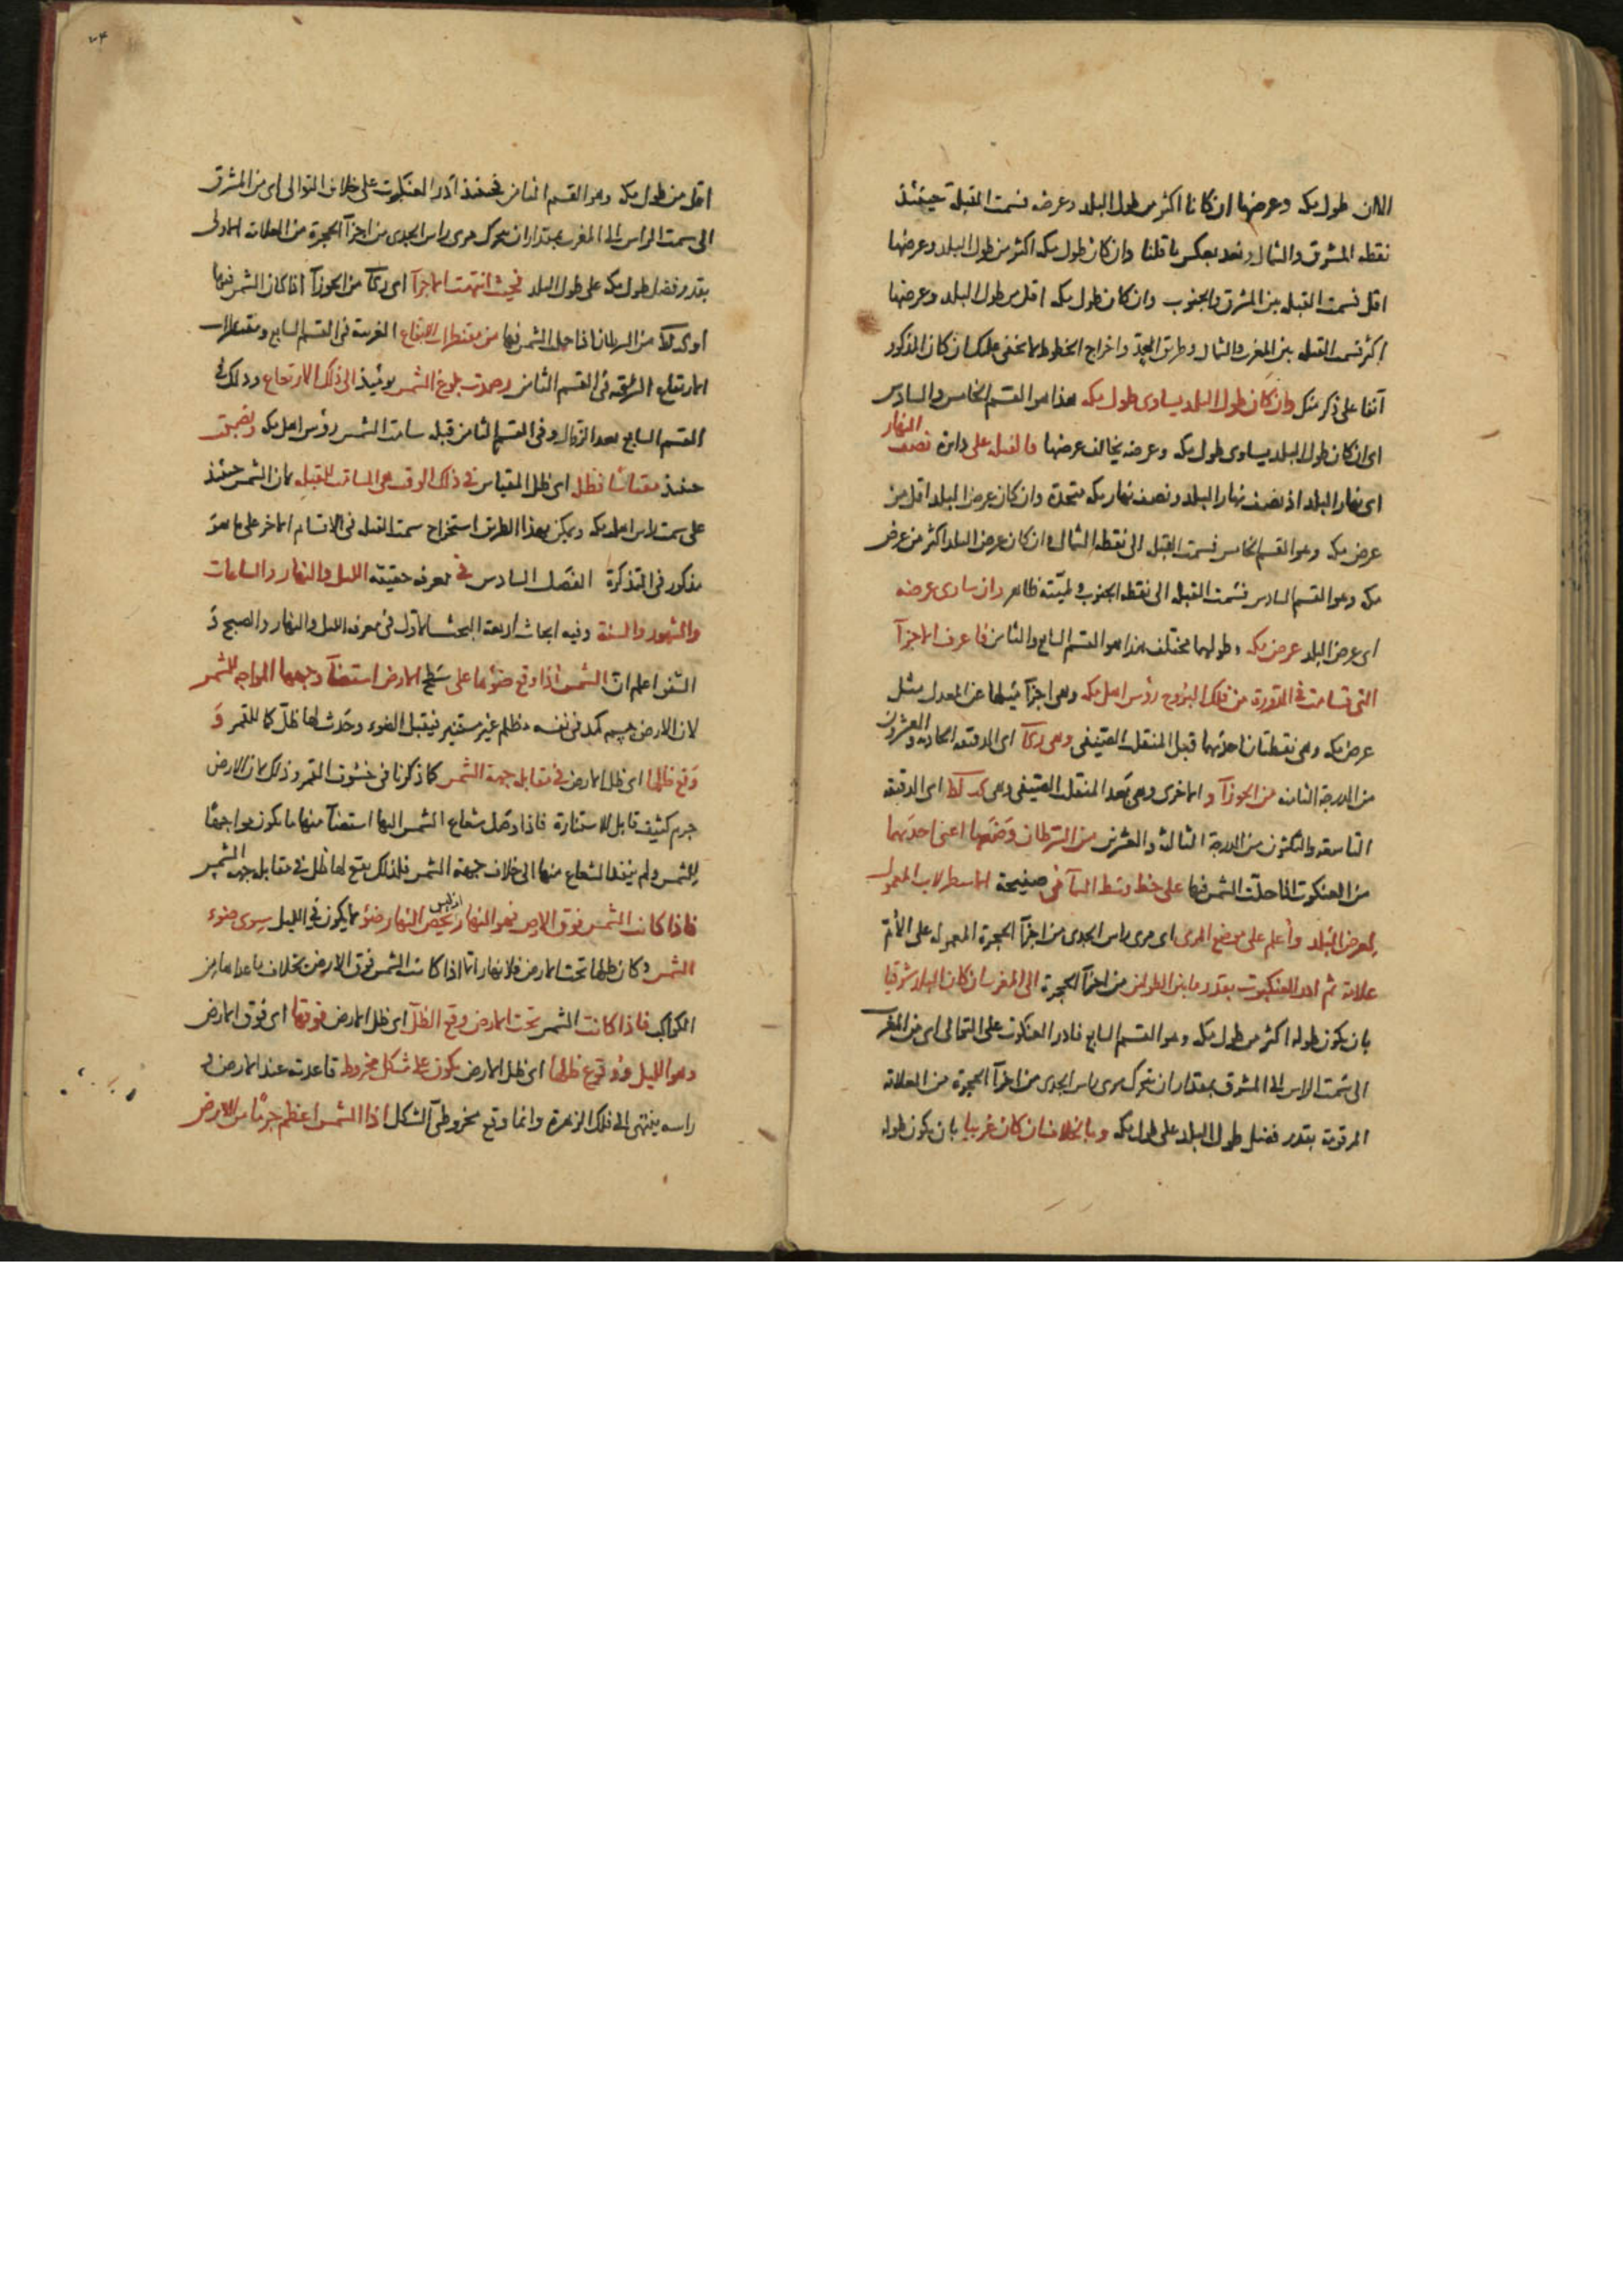 الان طول مكه وعرضها ان كانا اكثر من طول البلد وعرضه فسمت القبلة حينئذ
نقطه المشرق والشمال وبعد بعكس ما قلنا وان كان طول مكه اكثر من طول البلد وعرضها
اقل فسمت القبله بين المشرق والجنوب وان كان طول مكه اقل من طول البلد وعرضها
اكثر فسمت القبله بين المغرب والشمال وطريق واخراج الخطوط لا يخفى عليك ان كان المذكور
آنفا على ذكر منك وان كان طول البلد يساوى طول مكه هذا هو القسم الخامس والسادس
اى ان كان طول البلد يساوى طول مكه وعرضه يخالف عرضها فالقبله على دايرة نصف النهار
اى نهار البلد اذ نصف نهار البلد ونصف نهار مكه متحدة وان كان عرض البلد اقل من
عرض مكه وهو القسم الخامس فسمت القبله الى نقطه الشمال وان كان عرض البلد اكثر من عرض
مكه وهو القسم السادس فسمت القبله الى نقطه الجنوب ولميّته ظاهر وان ساوى عرضه
اى عرض البلد عرض مكه وطولهما مختلف هذا هو القسم السابع والثامن فاعرف الاجزآ
التى تسامت فى الدورة من فلك البروج رؤس اهل مكه وهى اجزآ ميلها عن المعدل مثل
عرض مكه وهى نقطتان احديهما قبل المنقلب الصيفى وهى زكآ اى الدقيقه الحاديه والعشرون
من الدرجة الثامنه من الجوزآ والاخرى وهى بعد المنقلب الصيفى وهى كد لط اى الدقيقه
التاسعه والثلثون من الدرجة الثالثة والعشرين من السرطان وضعها اعنى احديهما
من العنكبوت اذا حلّت الشمس فيها على خط وسط السمآ فى صفيحة الاسطرلاب المعمول
لعرض البلد واعلم على موضع المرى اى مرى راس الجدى من اجزآ الحجرة المعموله على الأم
علامة ثم ادر العنكبوت بقدر ما بين الطولين من اجزآ الحجرة الى المغرب ان كان البلد شرقيا
بان يكون طوله اكثر من طول مكه وهو القسم السابع فادر العنكبوت على التوالى اى من المغرب
الى سمت الراس الى المشرق بمقدار ان يتحرك مرى راس الجدى من اجزآ الحجرة من العلامة
المرقومة بقدر فضل طول البلد على طول مكه وبالخلاف ان كان غربيا بان يكون طوله
اقل من طول مكه وهو القسم الثامن فحينئذ ادر العنكبوت على خلاف التوالى اى من المشرق
الى سمت الراس الى المغرب بمقدار ان يتحرك مرى راس الجدى من اجزآ الحجرة من العلامة الاولى
بقدر فضل طول مكه على طول البلد فحيث انتهت الاجزآ اى زكآ من الجوزآ اذا كان الشمس فيها
او كد لط من السرطان اذا حل الشمس فيها من مقنطرات الارتفاع الغربية فى القسم السابع ومقنطرات
الارتفاع الشرقيه فى القسم الثامن رصدت بلوغ الشمس يومئذ الى ذلك الارتفاع وذلك فى
القسم السابع بعد الزوال وفى القسم الثامن قبله سامت الشمس رؤس اهل مكه ونصبت
حينئذ مقياسًا فظل اى ظل المقياس فى ذلك الوقت هى المسامت للقبله لان الشمس حينئذ
على سمت راس اهل مكه ويمكن بهذا الطريق استخراج سمت القبله فى الاقسام الاخر على ما هو
مذكور فى التذكرة الفصل السادس فى معرفه حقيقه الليل والنهار والساعات
والشهور والسنة وفيه ابحاث اربعة البحث الاول فى معرفه الليل والنهار والصبح و
الشفق اعلم ان الشمس اذا وقع ضوئها على سطح الارض استضآ وجهها المواجه للشمس
لان الارض جسم كمد فى نفسه مظلم غير مستنير فيقبل الضوء وحدث لها ظلّ كما للقمر و
وقع ظلها اى ظل الارض فى مقابله جهة الشمس كما ذكرنا فى خسوف القمر وذلك لان الارض
جرم كثيف قابل للاستنارة فاذا وصل شعاع الشمس اليها استضآ منها ما يكون مواجهًا
للشمس ولم ينفذ الشعاع منها الى خلاف جهة الشمس فلذلك يقع لها ظل فى مقابله جهه الشمس
فاذا كانت الشمس فوق الارض فهو النهار اذ ليس يخص النهار ضوء لا يكون فى الليل سوى ضوء
الشمس وكان ظلها تحت الارض فلا نهار الا اذا كانت الشمس فوق الارض بخلاف ما عداها من
الكواكب فاذا كانت الشمس تحت الارض وقع الظلّ اى ظل الارض فوقها اى فوق الارض
وهو الليل ووقوع ظلها اى ظل الارض يكون على شكل مخروط قاعدته عند الارض و
راسه ينتهى الى فلك الزهرة وانما وقع مخروطى الشكل اذا الشمس اعظم جرمًا من الارض